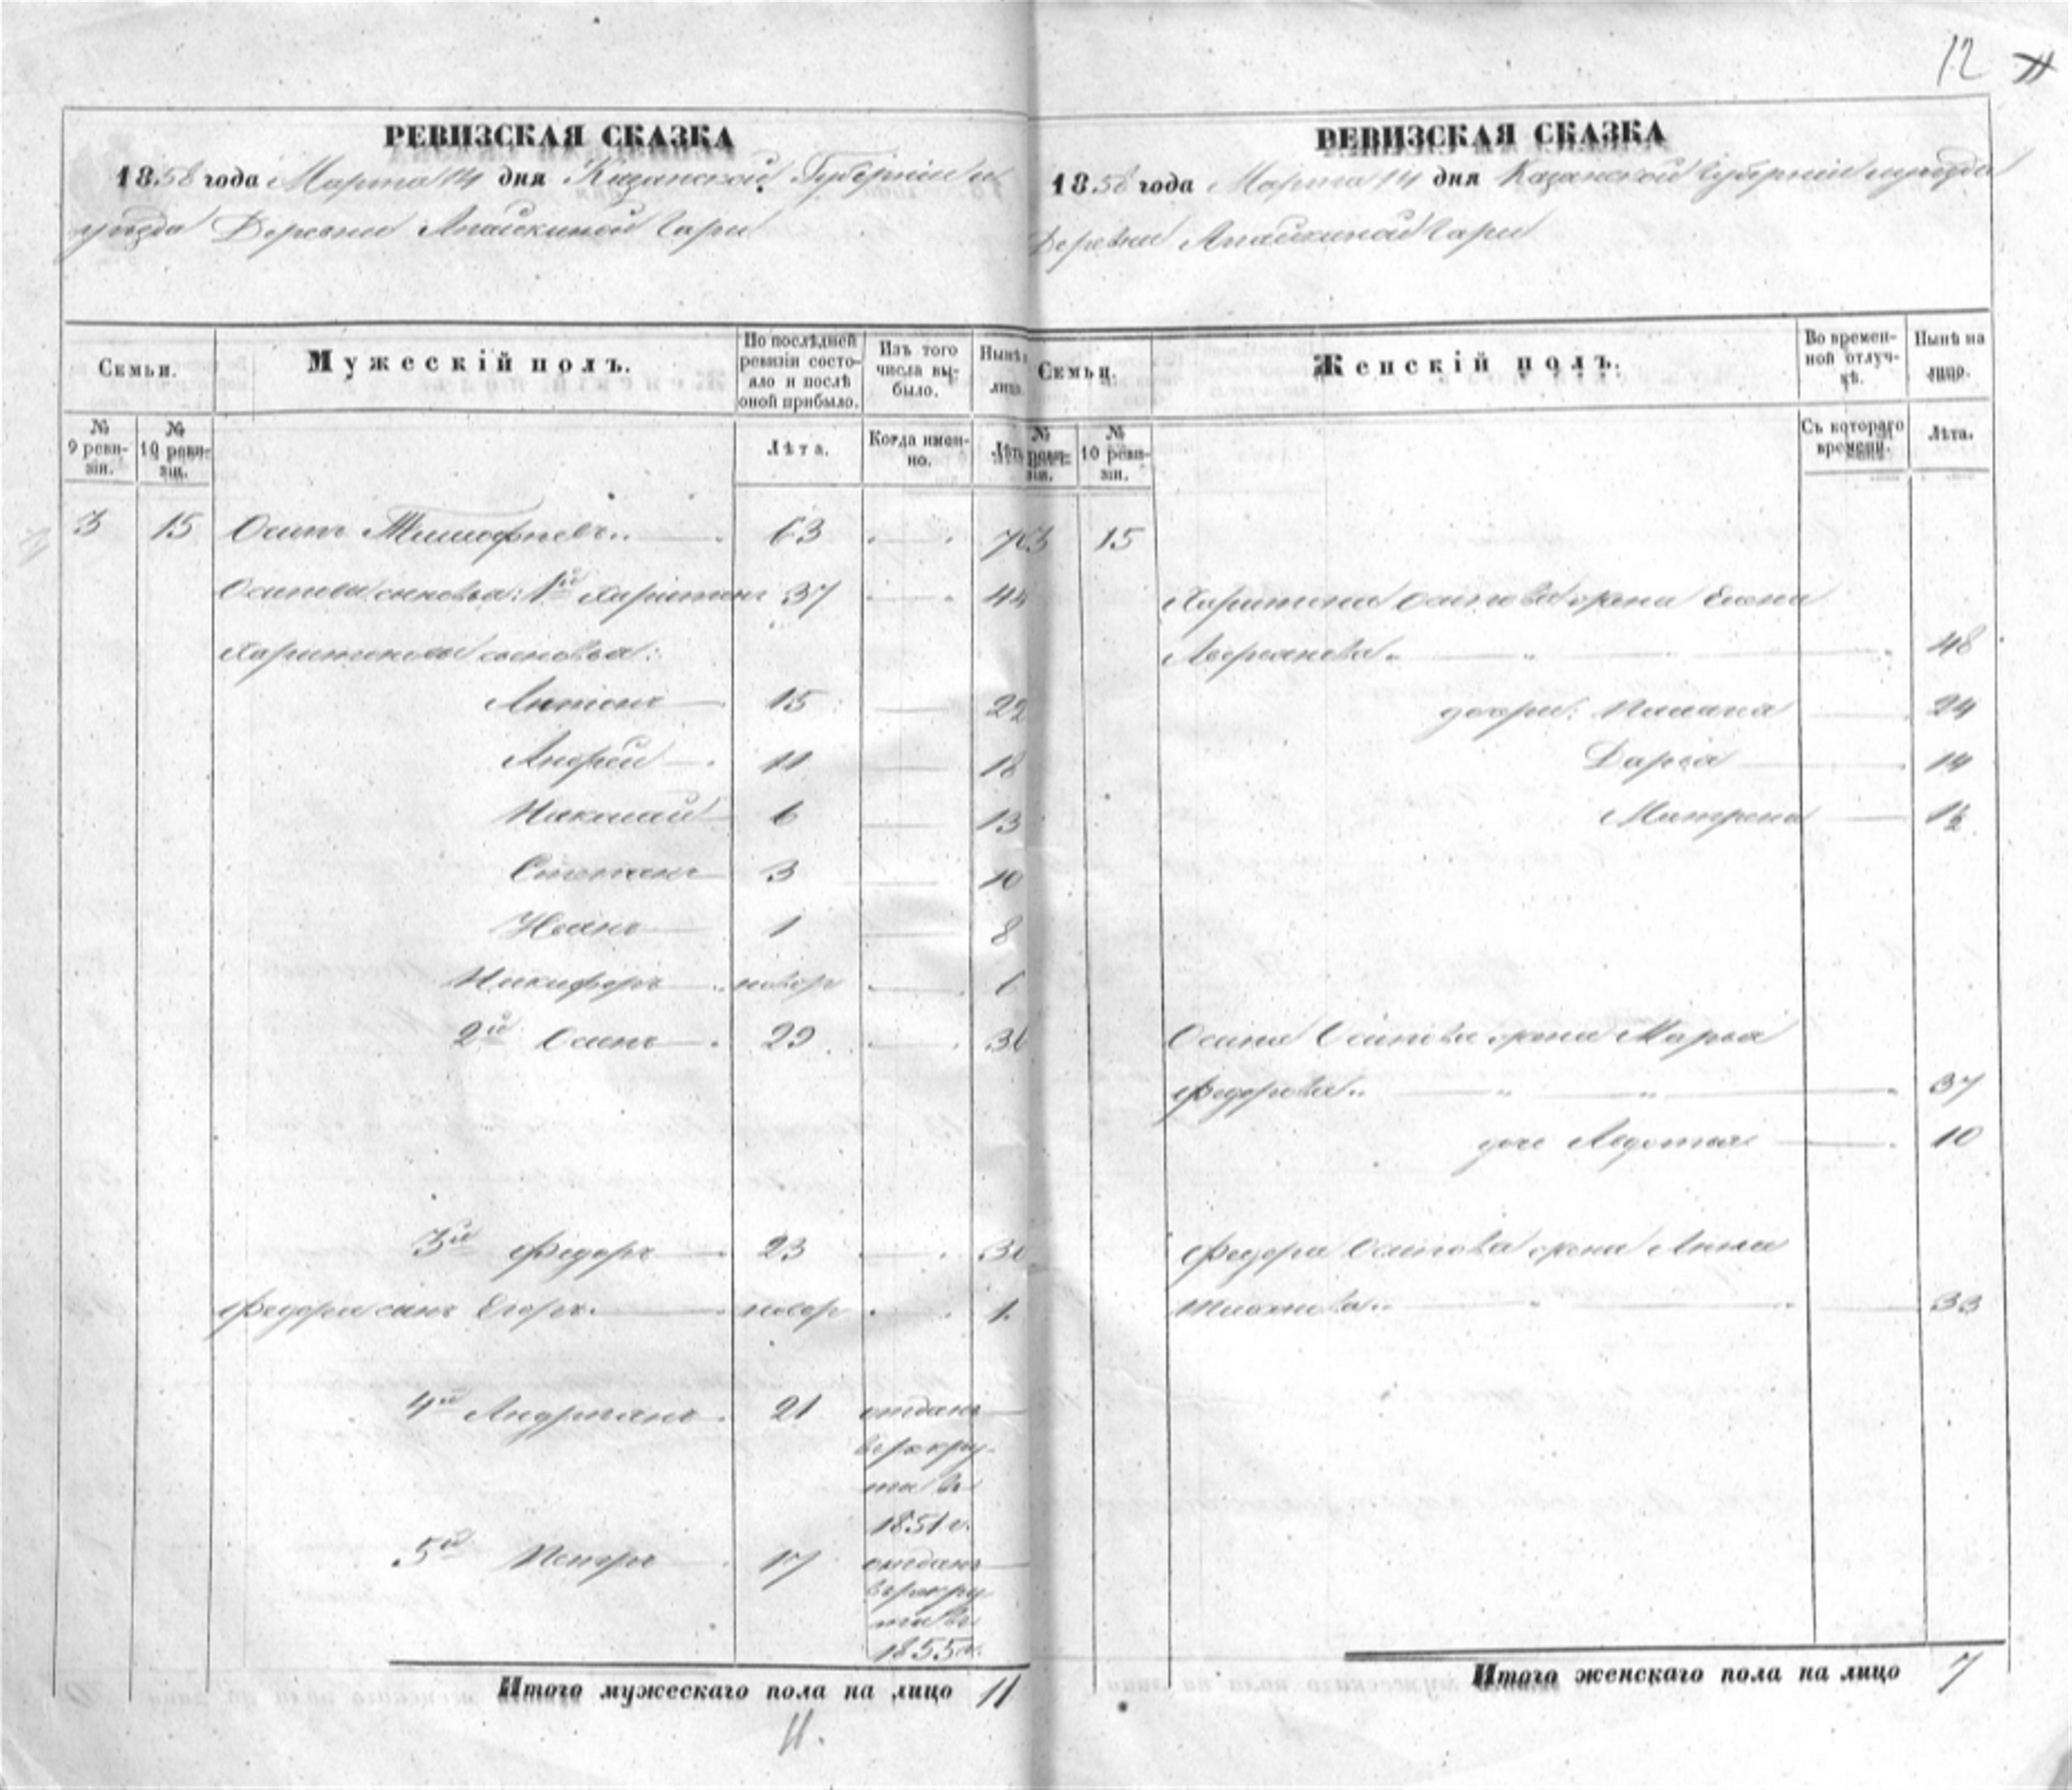 12
РЕВИЗСКАЯ СКАЗКА
1858 года Марта 14 дня Казанской Губернии и
уезда Деревни Апайкиной Гари
Семьи.
Мужескій полъ.
По послѣдней ревизіи состояло и послѣ оной прибыло.
Изъ того числа выбыло.
Нынѣ лицо
№ 9 ревизіи.
№ 10 ревизіи.
Лѣта.
Когда именно.
Лѣта
3 15 Осипъ Тимофѣевъ 63
Осиповы сыновья: 1й Харитонъ 37 44
Харитоновы сыновья:
Антонъ 15 22
Андрей 11 18
Николай 6 13
Степанъ 3 10
Иванъ 1 8
Никифоръ новор 1
2й Осипъ 29 36
3й Федоръ 23 30
Федора сынъ Егоръ новор 1
4й Андреянъ 21 отданъ
в рекру-
та в
1851 г.
5й Петръ 17 отданъ
в рекру
та в
1855 г.
Итого мужескаго пола на лицо 11
11.
РЕВИЗСКАЯ СКАЗКА
1858 года Марта 14 дня Казанской Губернии и уезда
Деревни Апайкиной Гари
Семьи.
Женскій полъ.
Во временной отлучкѣ.
Нынѣ на лицо.
№ ревизіи.
№ 10 ревизіи.
Съ котораго времени.
Лѣта.
3 15
Харитона Осипова жена Елена
Аверьянова 48
дочери: Пелагея 24
Дарья 14
Матрена 1½
Осипа Осипова жена Марья
Федорова 37
дочь Авдотья 10
Федора Осипова жена Анна
33
Итого женскаго пола на лицо 7